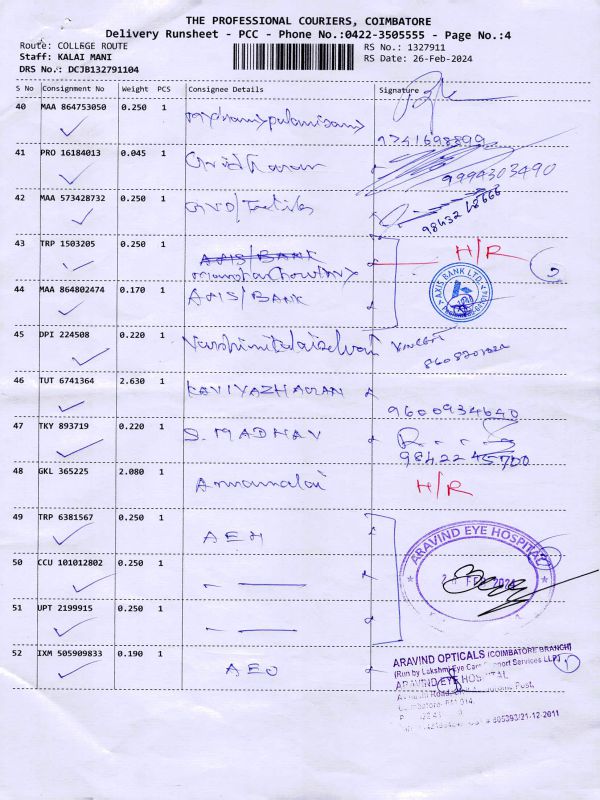 THE PROFESSIONAL COURIERS, COIMBATORE
Delivery Runsheet - PCC - Phone No.:0422-3505555 - Page No.:4
Route: COLLEGE ROUTE RS No.: 1327911
Staff: KALAI MANI RS Date: 26-Feb-2024
DRS No.: DCJB132791104
S No Consignment No Weight PCS Consignee Details Signature
40 MAA 864753050 0.250 1
9741698899
41 PRO 16184013 0.045 1
9994303490
42 MAA 573428732 0.250 1
43 TRP 1503205 0.250 1 AXIS/BANK H/R
44 MAA 864802474 0.170 1 AXIS/BANK AXIS BANK LTD.
45 DPI 224508 0.220 1 Vincent
46 TUT 6741364 2.630 1 KAVIYAZHAGAN 9600934640
47 TKY 893719 0.220 1 S. MADHAV
98422 45700
48 GKL 365225 2.080 1 Annamalai H/R
49 TRP 6381567 0.250 1 AEH ARAVIND EYE HOSPITAL
50 CCU 101012802 0.250 1
51 UPT 2199915 0.250 1
52 IXM 505909833 0.190 1 AEO
ARAVIND OPTICALS (COIMBATORE BRANCH)
(Run by Lakshmi Eye Care Support Services LLP) 1
ARAVIND EYE HOSPITAL